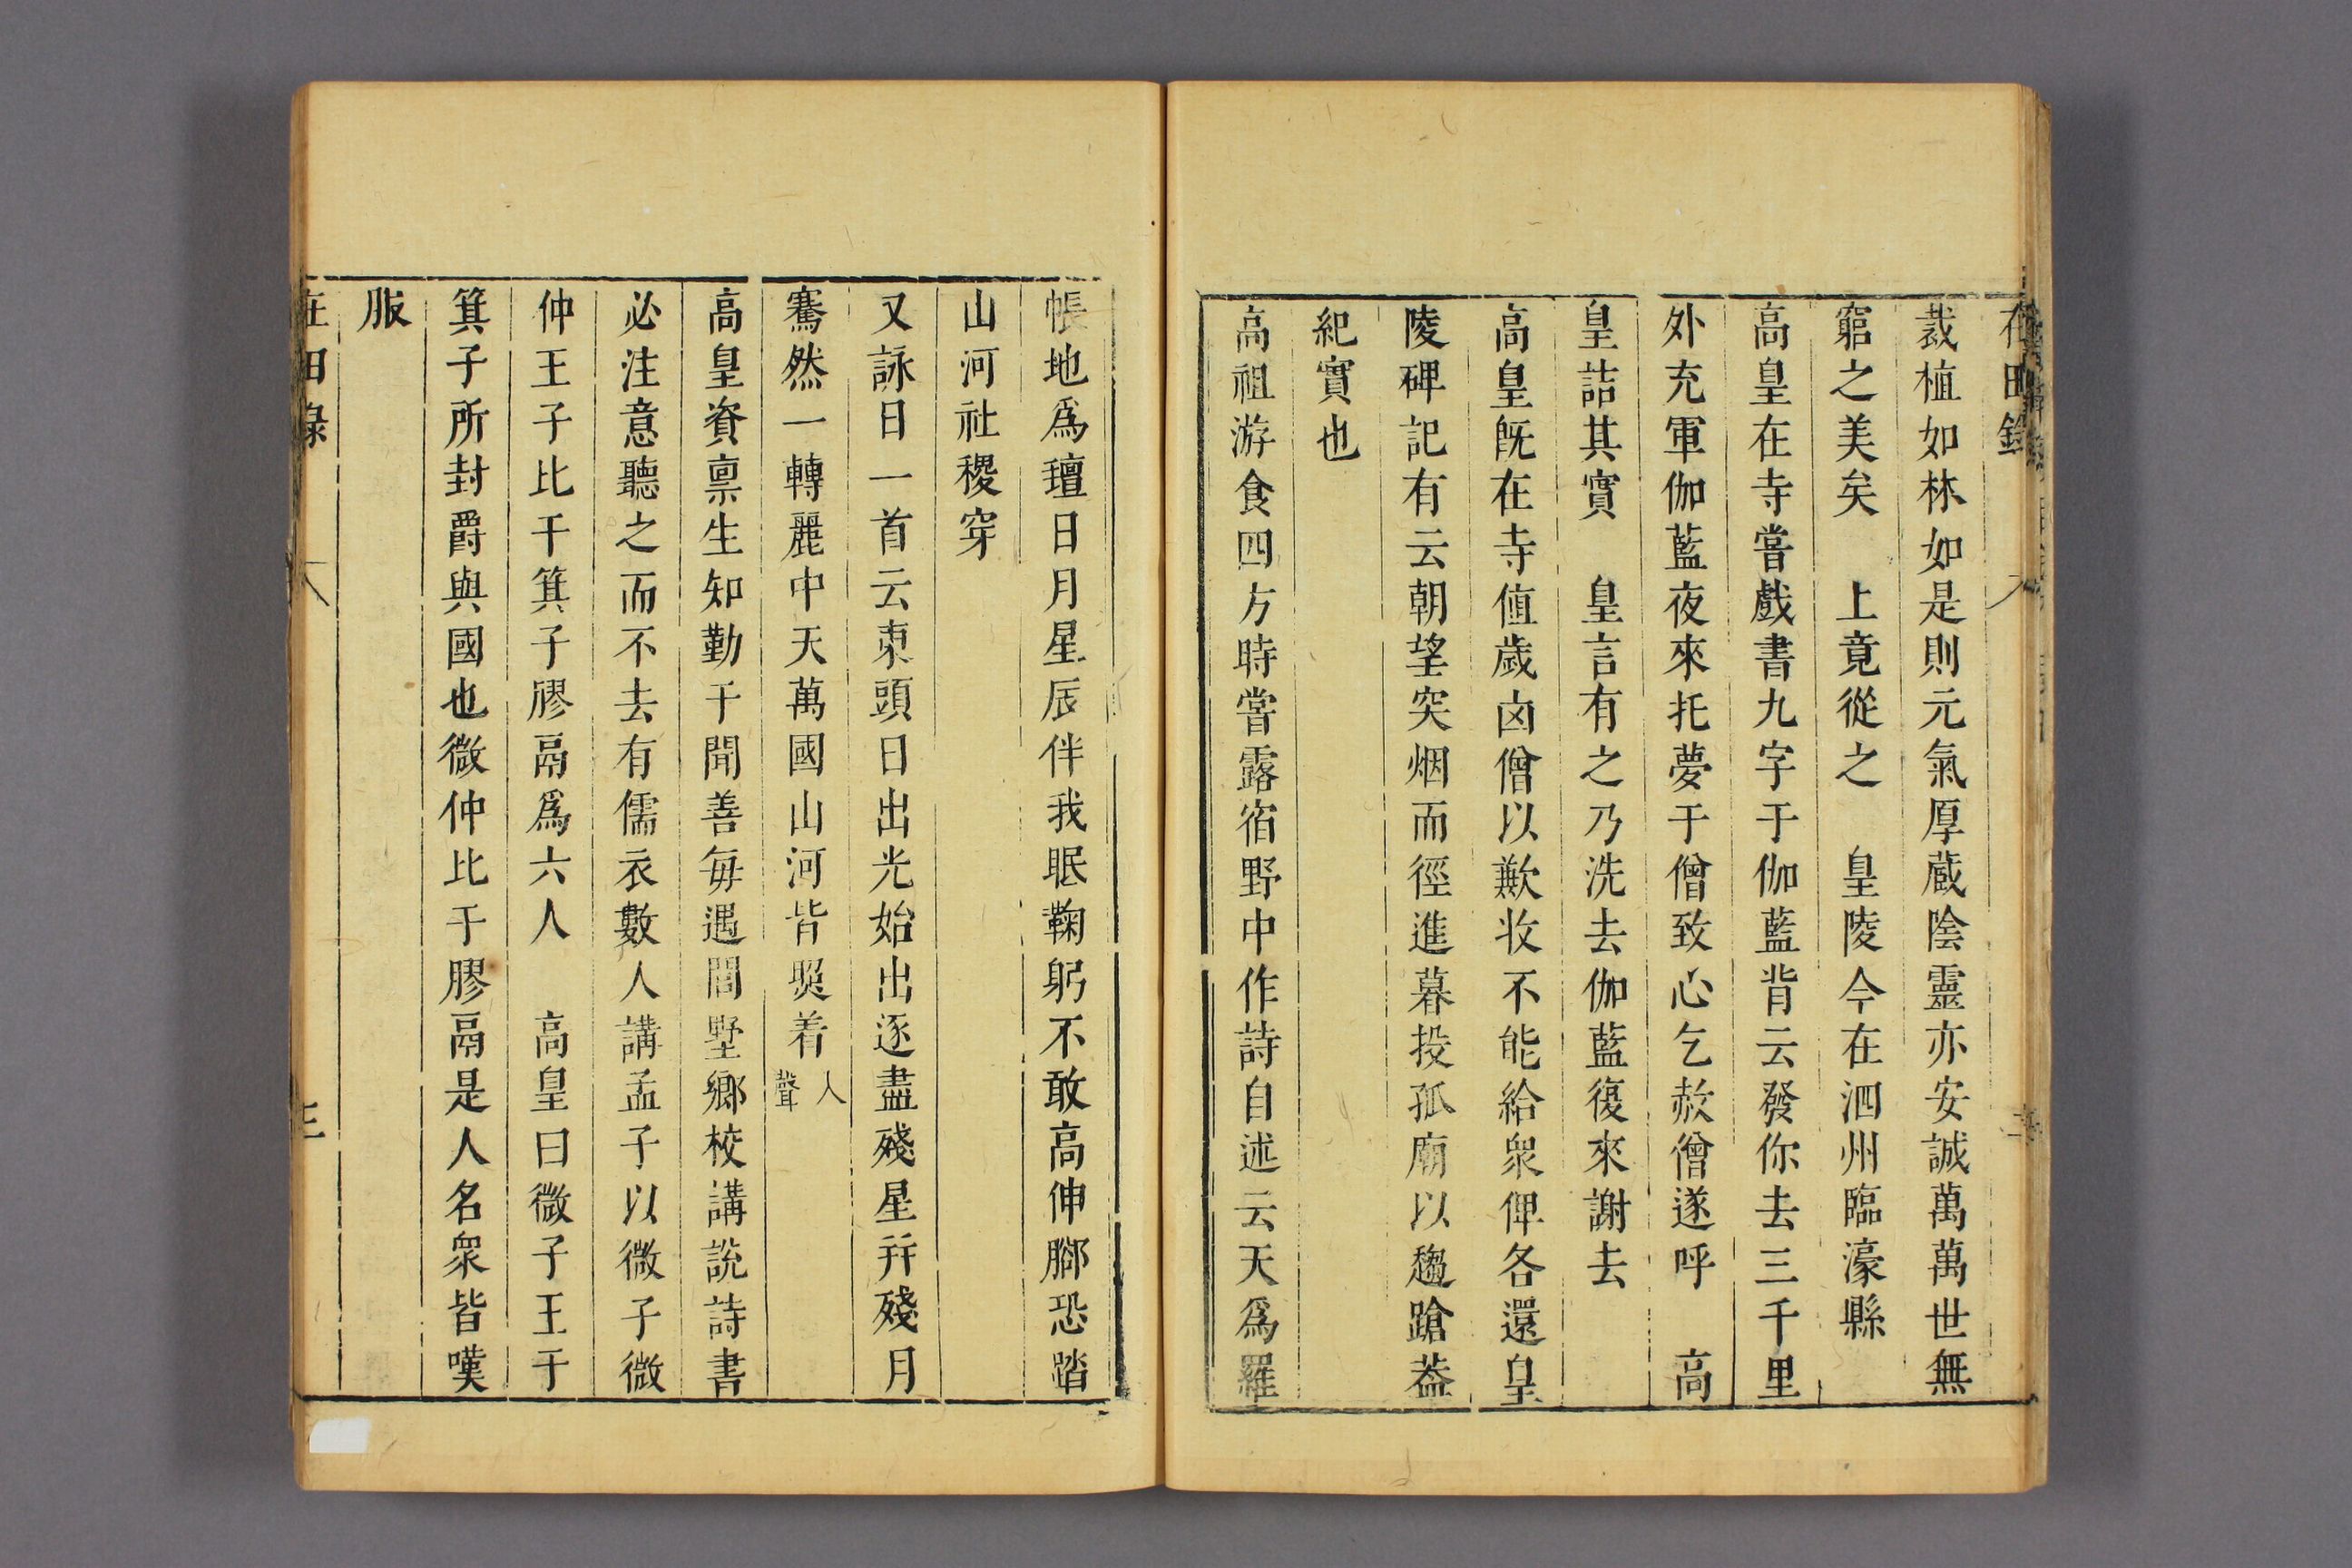 在田錄
裁植如林如是則元氣厚藏陰靈亦安誠萬萬世無
窮之美矣　上竟從之　皇陵今在泗州臨濠縣
高皇在寺嘗戲書九字于伽藍背云發你去三千里
外充軍伽藍夜來托夢于僧致心乞赦僧遂呼　高
皇詰其實　皇言有之乃洗去伽藍復來謝去
高皇旣在寺値歲凶僧以歉收不能給衆俾各還皇
陵碑記有云朝望突烟而徑進暮投孤廟以趨蹌葢
紀實也
高祖游食四方時嘗露宿野中作詩自述云天爲羅
帳地爲氊日月星辰伴我眠鞠躬不敢高伸脚恐踏
山河社稷穿
又詠日一首云東頭日出光始出逐盡殘星幷殘月
騫然一轉麗中天萬國山河皆照着人聲
高皇資禀生知勤于聞善每遇閭墅鄉校講說詩書
必注意聽之而不去有儒衣數人講孟子以微子微
仲王子比干箕子膠鬲爲六人　高皇曰微子王于
箕子所封爵與國也微仲比于膠鬲是人名衆皆嘆
服
在田錄